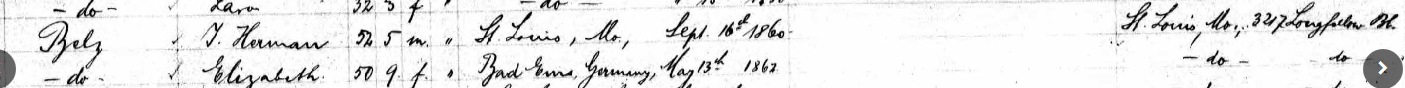 - do - Lara 32 3 f " - do -
Belz ✓ J. Herman 52 5 m. " St. Louis, Mo., Sept. 16th 1860 St. Louis, Mo., 3217 Longfellow Bl.
- do - ✓ Elizabeth 50 9 f " Bad Ems, Germany, May 13th 1862 - do - do